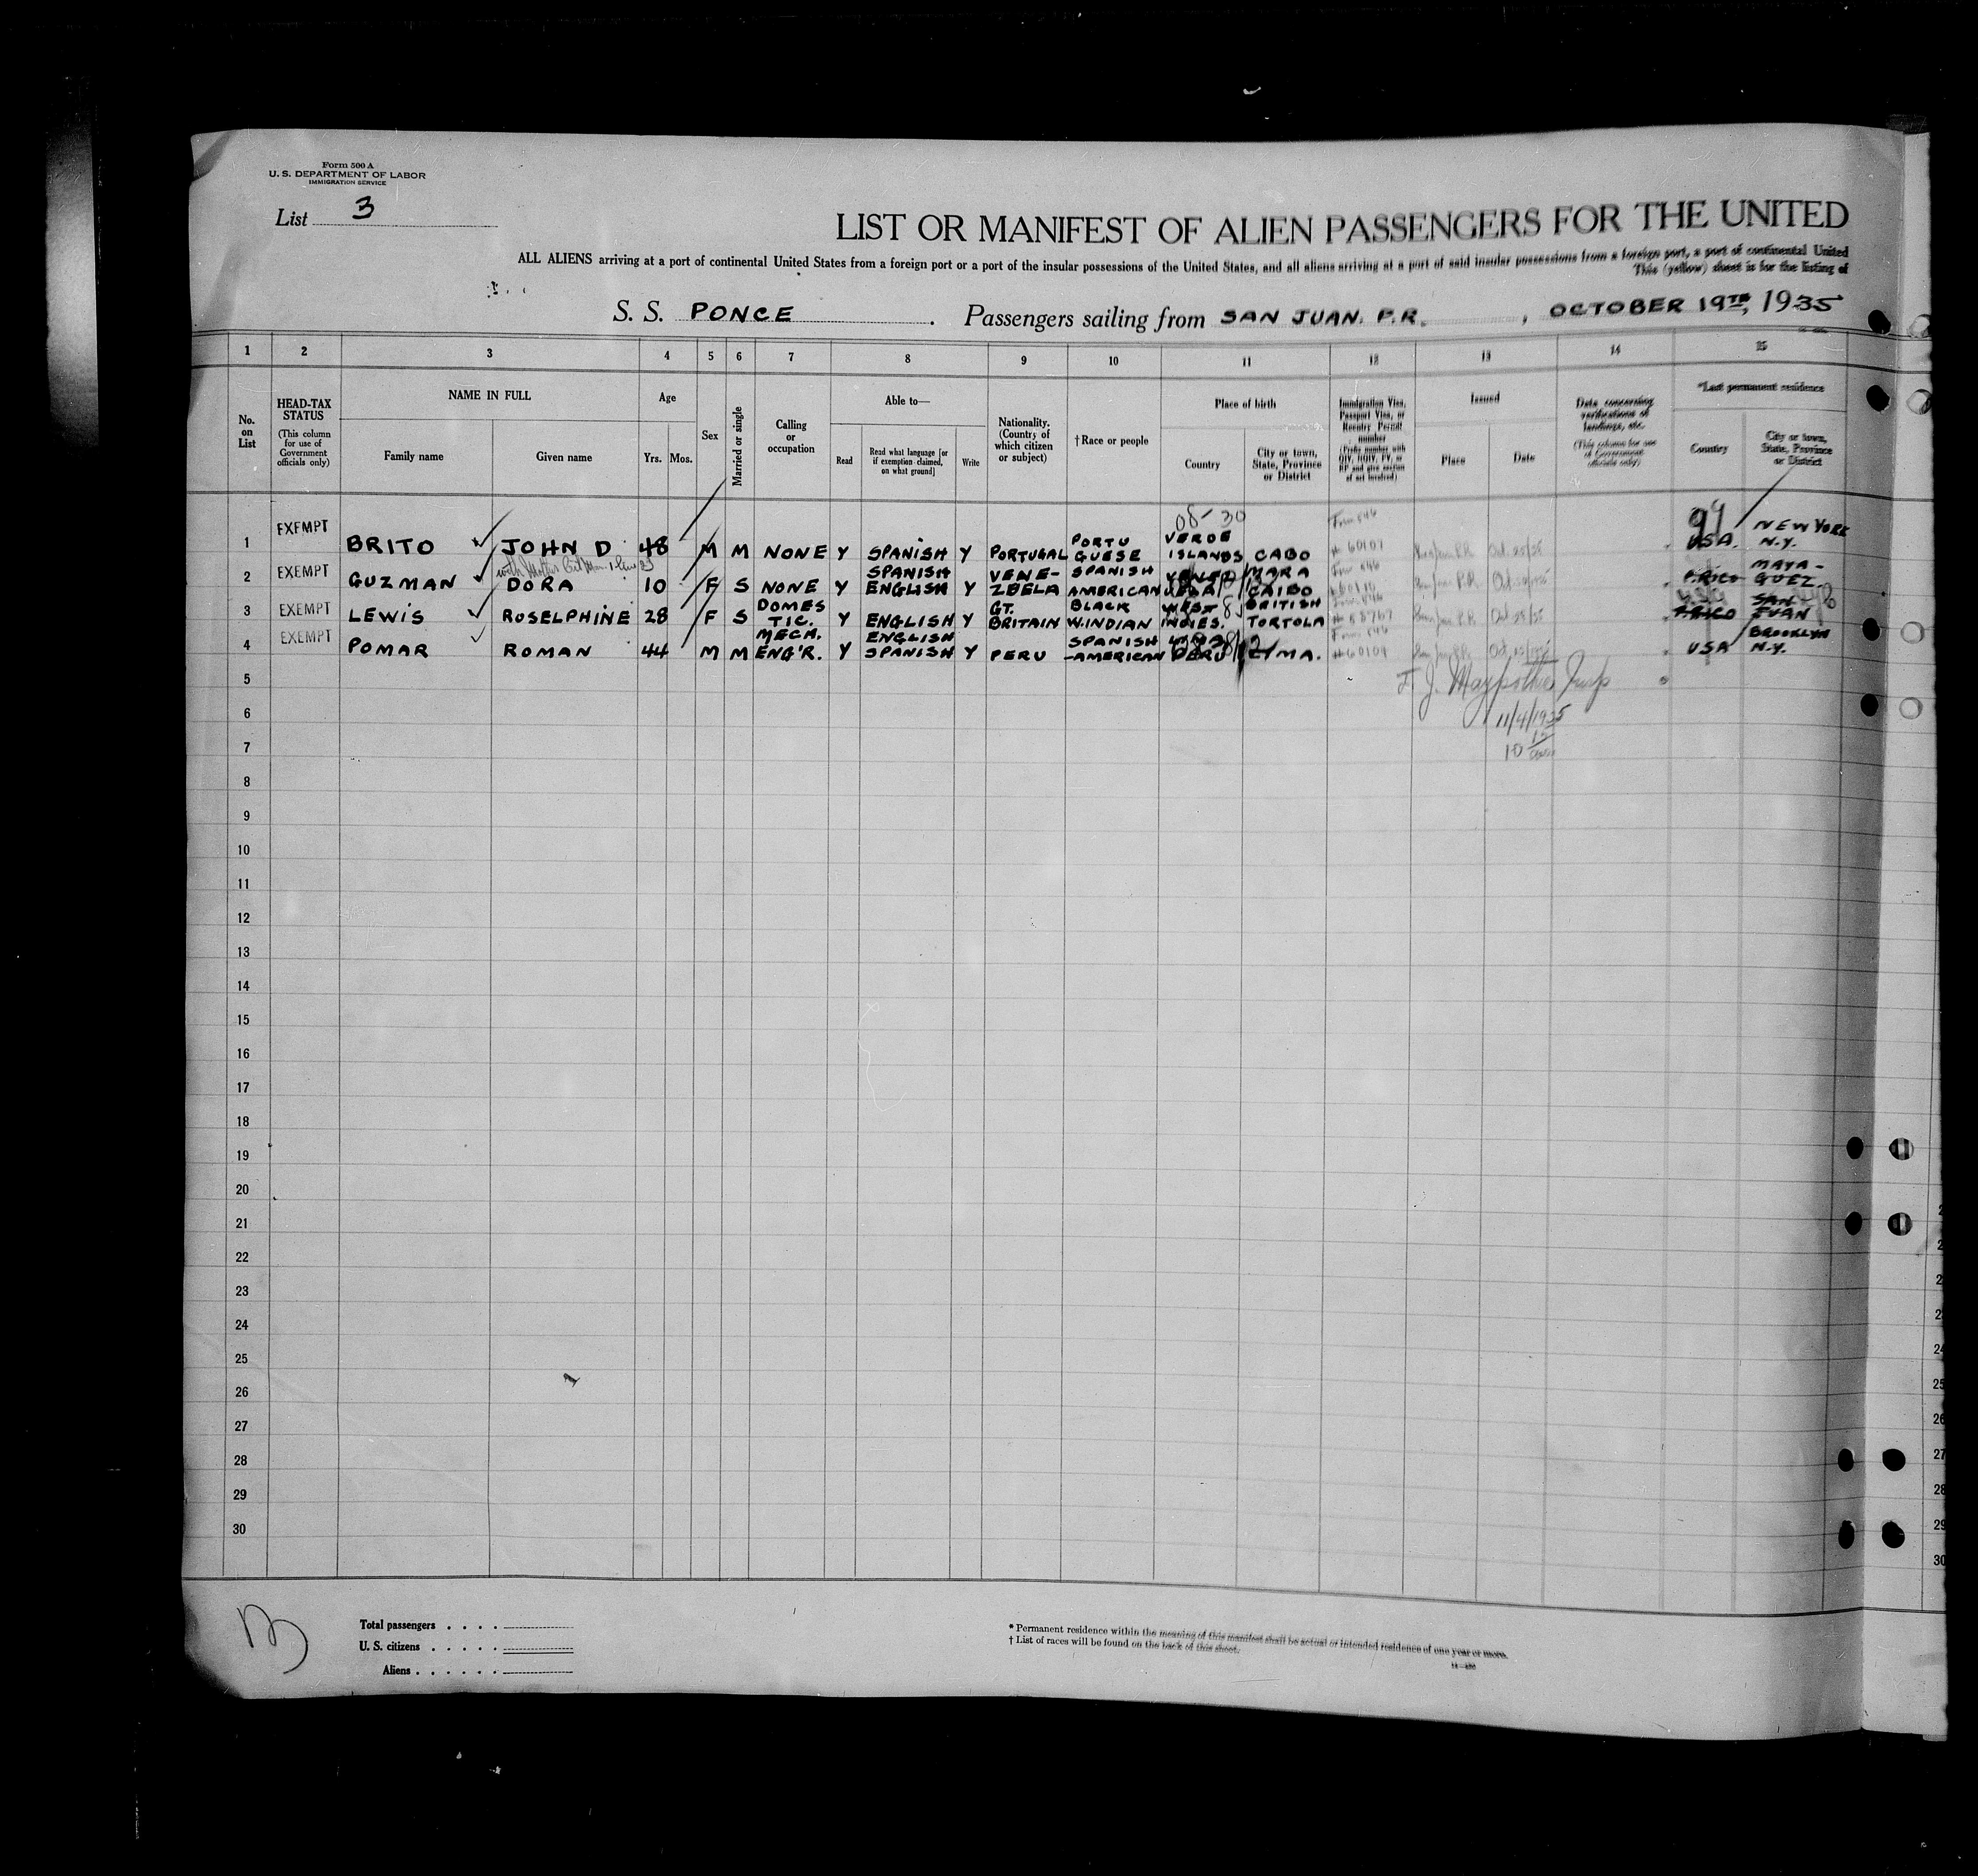 Form 500 A
U. S. DEPARTMENT OF LABOR
IMMIGRATION SERVICE
List 3
LIST OR MANIFEST OF ALIEN PASSENGERS FOR THE UNITED
ALL ALIENS arriving at a port of continental United States from a foreign port or a port of the insular possessions of the United States, and all aliens arriving at a port of said insular possessions from a foreign port, a port of continental United
This (yellow) sheet is for the listing of
S. S. PONCE. Passengers sailing from SAN JUAN. P.R., OCTOBER 19TH, 1935
1 2 3 4 5 6 7 8 9 10 11 12 13 14 15
No. on List
HEAD-TAX STATUS
(This column for use of Government officials only)
NAME IN FULL
Family name
Given name
Age
Yrs. Mos.
Sex
Married or single
Calling or occupation
Able to—
Read
Read what language [or if exemption claimed, on what ground]
Write
Nationality. (Country of which citizen or subject)
†Race or people
Place of birth
Country
City or town, State, Province or District
Immigration Visa, Passport Visa, or Reentry Permit number
(Prefix number with QIV, NQIV, PV, or RP and give section of act involved)
Issued
Place
Date
Data concerning verifications of landings, etc.
(This column for use of Government officials only)
*Last permanent residence
Country
City or town, State, Province or District
1 EXEMPT BRITO JOHN D. 48 M M NONE Y SPANISH Y PORTUGAL PORTU GUESE 08-30 VERDE ISLANDS CABO # 60107 99 USA. NEW YORK N.Y.
with Mother
2 EXEMPT GUZMAN DORA 10 F S NONE Y SPANISH ENGLISH Y VENE-ZUELA SPANISH AMERICAN MARA CAIBO P.RICO MAYA-GUEZ
3 EXEMPT LEWIS ROSELPHINE 28 F S DOMES TIC. Y ENGLISH Y GT. BRITAIN BLACK W.INDIAN WEST INDIES. BRITISH TORTOLA P.RICO SAN JUAN
4 EXEMPT POMAR ROMAN 44 M M MECH. ENG'R. Y ENGLISH SPANISH Y PERU SPANISH -AMERICAN PERU LIMA. # 60109 USA BROOKLYN N.Y.
5
6 11/4/1935
7 10 15
8
9
10
11
12
13
14
15
16
17
18
19
20
21
22
23
24
25
26
27
28
29
30
Total passengers
U. S. citizens
Aliens
* Permanent residence within the meaning of this manifest shall be actual or intended residence of one year or more.
† List of races will be found on the back of this sheet.